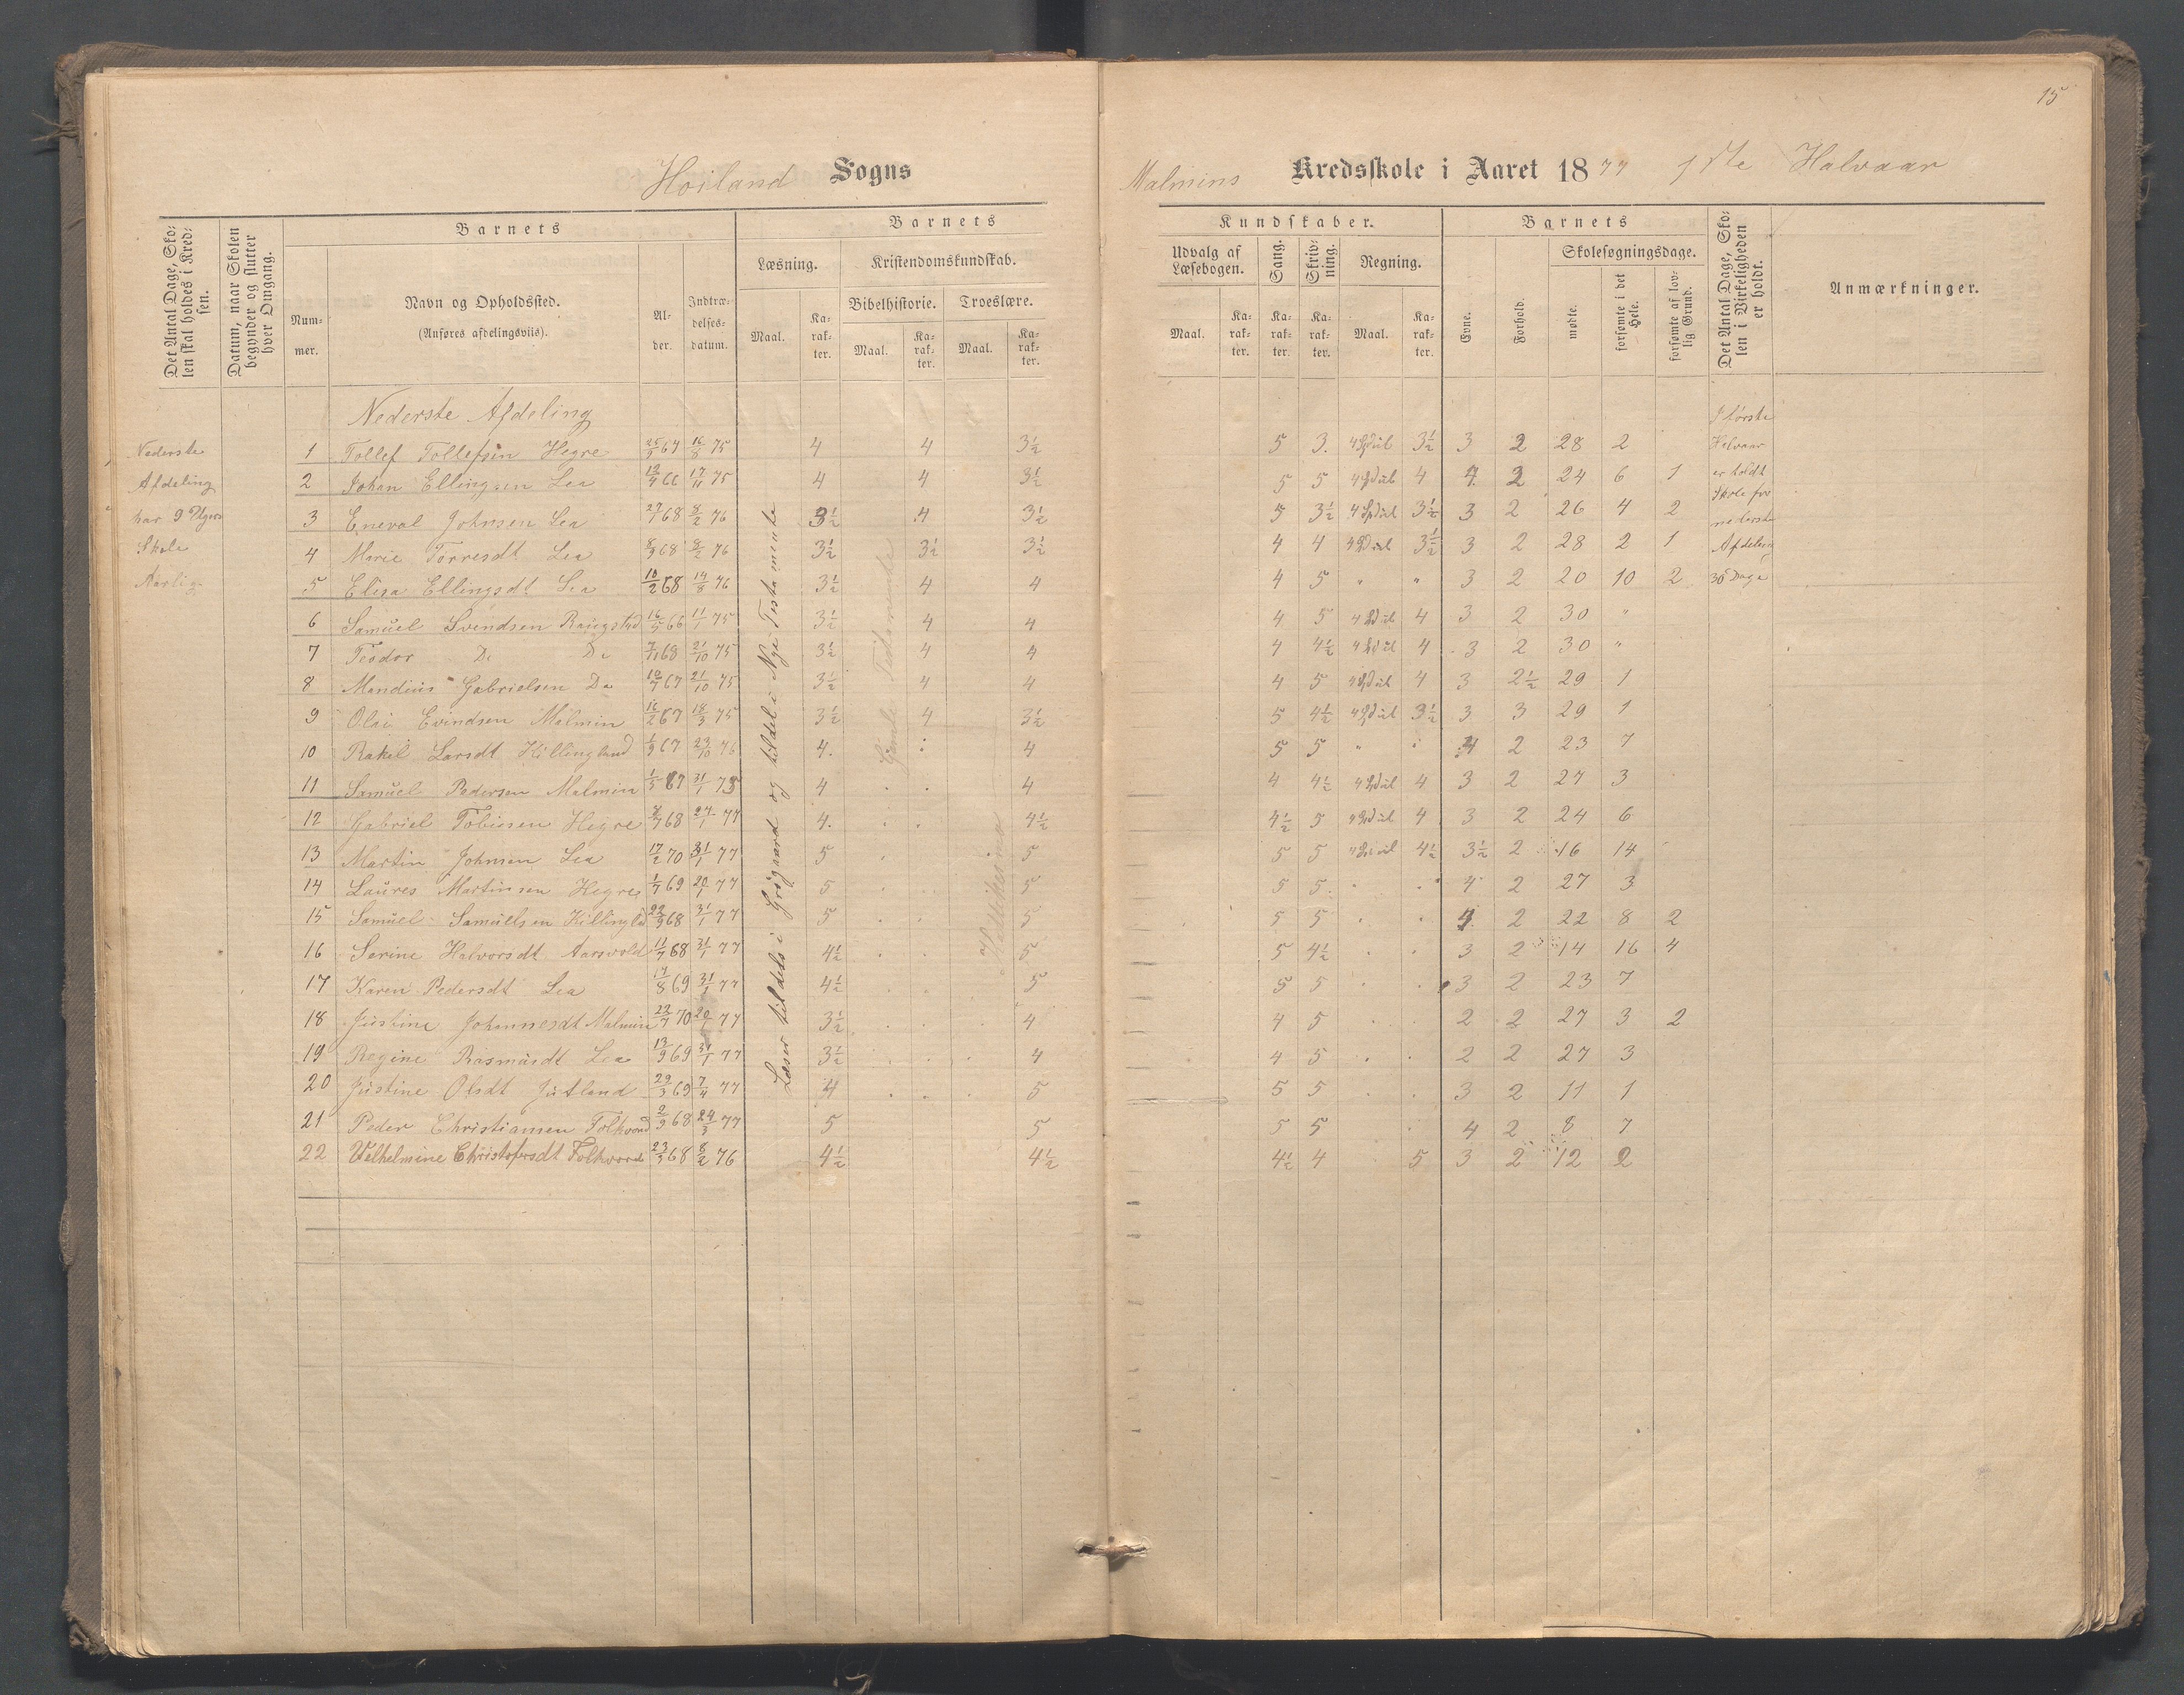 15
Hoiland Sogns
Malmins Kredsskole i Aaret 1877 1ste Halvaar
Det Antal Dage, Skolen skal holdes i Kredsen.
Datum, naar Skolen begynder og slutter hver Omgang.
Barnets
Nummer.
Navn og Opholdssted.
(Anføres afdelingsviis).
Alder.
Indtrædelsesdatum.
Barnets
Læsning.
Maal.
Karakter.
Kristendomskundskab.
Bibelhistorie.
Maal.
Karakter.
Troeslære.
Maal.
Karakter.
Kundskaber.
Udvalg af Læsebogen.
Maal.
Karakter.
Sang.
Karakter.
Skrivning.
Karakter.
Regning.
Maal.
Karakter.
Barnets
Evne.
Forhold.
Skolesøgningsdage.
mødte.
forsømte i det Hele.
forsømte af lovlig Grund.
Det Antal Dage, Skolen i Virkeligheden er holdt.
Anmærkninger.
Nederste Afdeling
Nederste
Afdeling
har 9 Uger
Skole
Aarlig
Læser tildels i Griffard og tildel i Nye Testamente
Gamle Testamente
I første
Halvaar
er holdt
Skole for
nederste
Afdeling
30 Dage
1 Tollef Tollefsen Hegre 25/5 67 16/8 75 4 4 3½ 5 3 3½ 3 2 28 2
2 Johan Ellingsen Lea 12/4 66 17/11 75 4 4 3½ 5 5 4 4 2 24 6 1
3 Eneval Johnsen Lea 27/7 68 8/2 76 3½ 4 3½ 5 3½ 3½ 3 2 26 4 2
4 Marie Torresdt Lea 8/3 68 8/2 76 3½ 3½ 3½ 4 4 3½ 3 2 28 2 1
5 Elisa Ellingsdt Lea 10/2 68 14/8 76 3½ 4 4 4 5 " " 3 2 20 10 2
6 Samuel Svendsen Raugstad 16/5 66 11/1 75 3½ 4 4 4 5 4 3 2 30 "
7 Teodor Do Do 7/11 68 21/10 75 3½ 4 4 4 4½ 4 3 2 30 "
8 Mandius Gabrielsen Do 10/7 67 21/10 75 3½ 4 4 4 5 4 3 2½ 29 1
9 Olai Evindsen Malmin 16/2 67 18/3 75 3½ 4 3½ 5 4½ 3½ 3 3 29 1
10 Rakel Larsdt Killingland 1/9 67 23/10 76 4. 4 5 5 " 4 2 23 7
11 Samuel Pedersen Malmin 1/5 67 31/1 75 4 4 4 4½ 4 3 2 27 3
12 Gabriel Tobiesen Hegre 8/7 68 27/1 77 4. 4½ 4½ 5 4 3 2 24 6
13 Martin Johnsen Lea 17/2 70 31/1 77 5 5 5 5 4½ 3½ 2 16 14
14 Laures Martinsen Hegre 1/7 69 20/1 77 5 5 5 5 4 2 27 3
15 Samuel Samuelsen Killingld 22/9 68 31/1 77 5 5 5 5 4 2 22 8 2
16 Serine Halvorsdt Aarsvold 11/7 68 31/1 77 4½ 5 5 4½ 3 2 14 16 4
17 Karen Pedersdt Lea 14/8 69 31/1 77 4½ 5 5 5 3 2 23 7
18 Justine Johannesdt Malmin 22/7 70 20/1 77 3½ 4 4 5 2 2 27 3 2
19 Regine Rasmusdt Lea 13/9 69 31/1 77 3½ 4 4 5 2 2 27 3
20 Justine Olsdt Jutland 29/3 69 7/4 77 4 5 5 5 3 2 11 1
21 Peder Christiansen Folkvord 2/9 68 24/3 77 5 5 5 5 4 2 8 7
22 Vilhelmine Christofersdt Folkvord 23/3 68 8/2 76 4½ 4½ 4½ 4 5 3 2 12 2